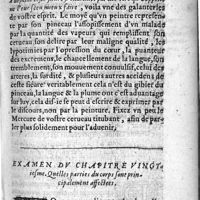 ou Peur bien meux faire, voila vne des galanteries
de vostre esprit. Le moyē qu'vn peintre represen-
te par son pinceau l'assopissement d'vn malade
par la quantité des vapeurs qui remplissent son
cerueau, son delire par leur maligne qualité, les
lypotimies par l'opression du cœur, la puanteur
des excremens, le chancellement de la langue, son
tremblement, son mouuement conuulsif, celuy des
arteres, la surdité, & plusieurs autres accidens de
ceste figure veritablement cela n'est du gibier du
pinceau, la langue & la plume ont c'est auantage
sur luy, cela dis-je se peut d'escrire & exprimer par
le discours, non par la peinture, Fixez vn peu le
Mercure de vostre cerueau titubant, afin de par-
ler plus solidement pour l'aduenir,
EXAMEN DV CHAPITRE VINGT-
iesme, Quelles parties du corps sont prin-
cipalement affectées.